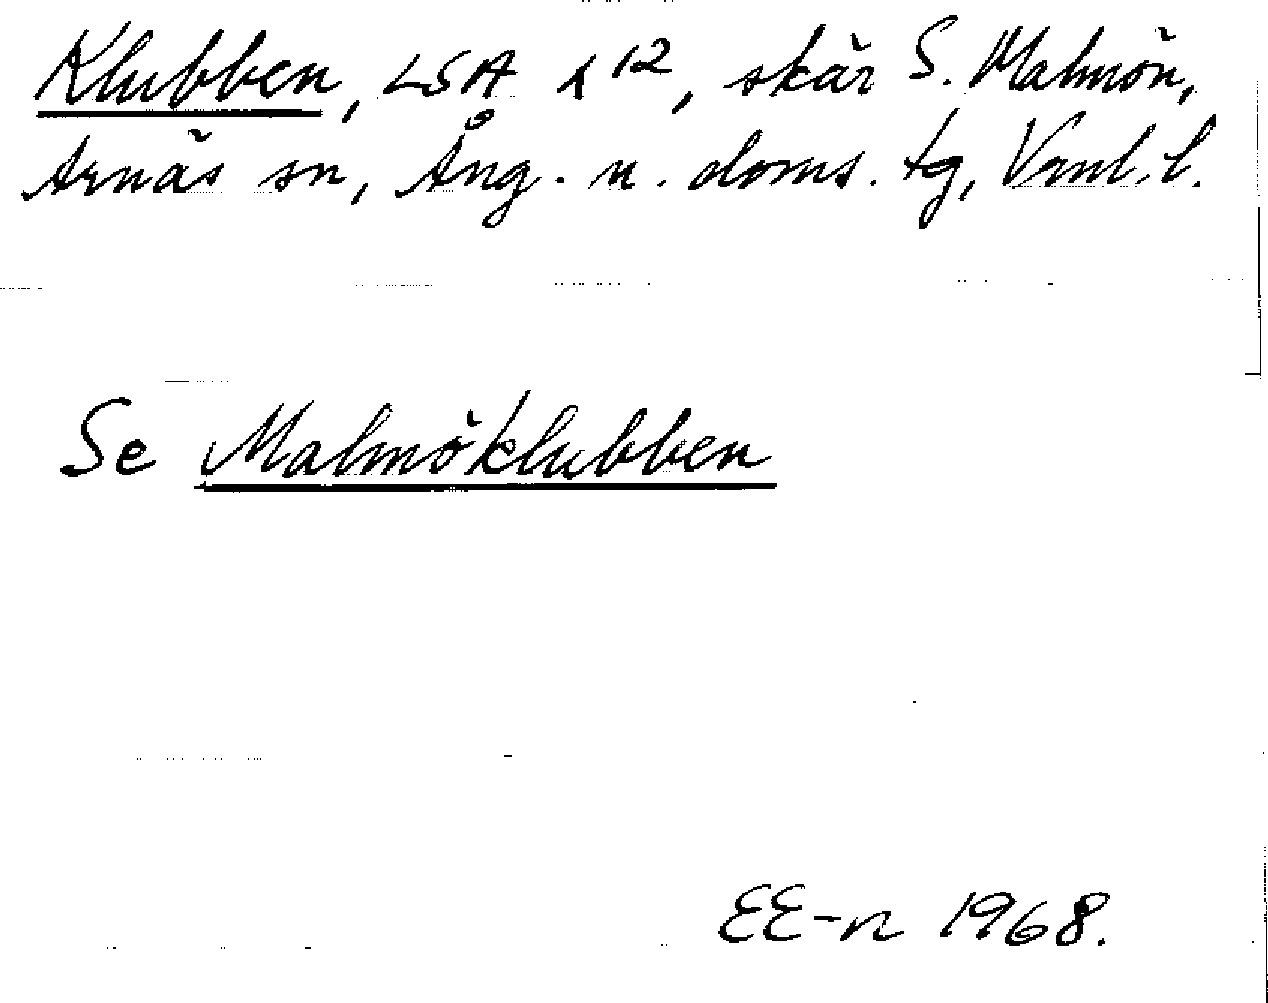 Klubben, LSA A 12, skär S. Malmön,
Arnäs sn, Ång. n. doms. tg, Vnml. l.
Se Malmöklubben
EE-n 1968.